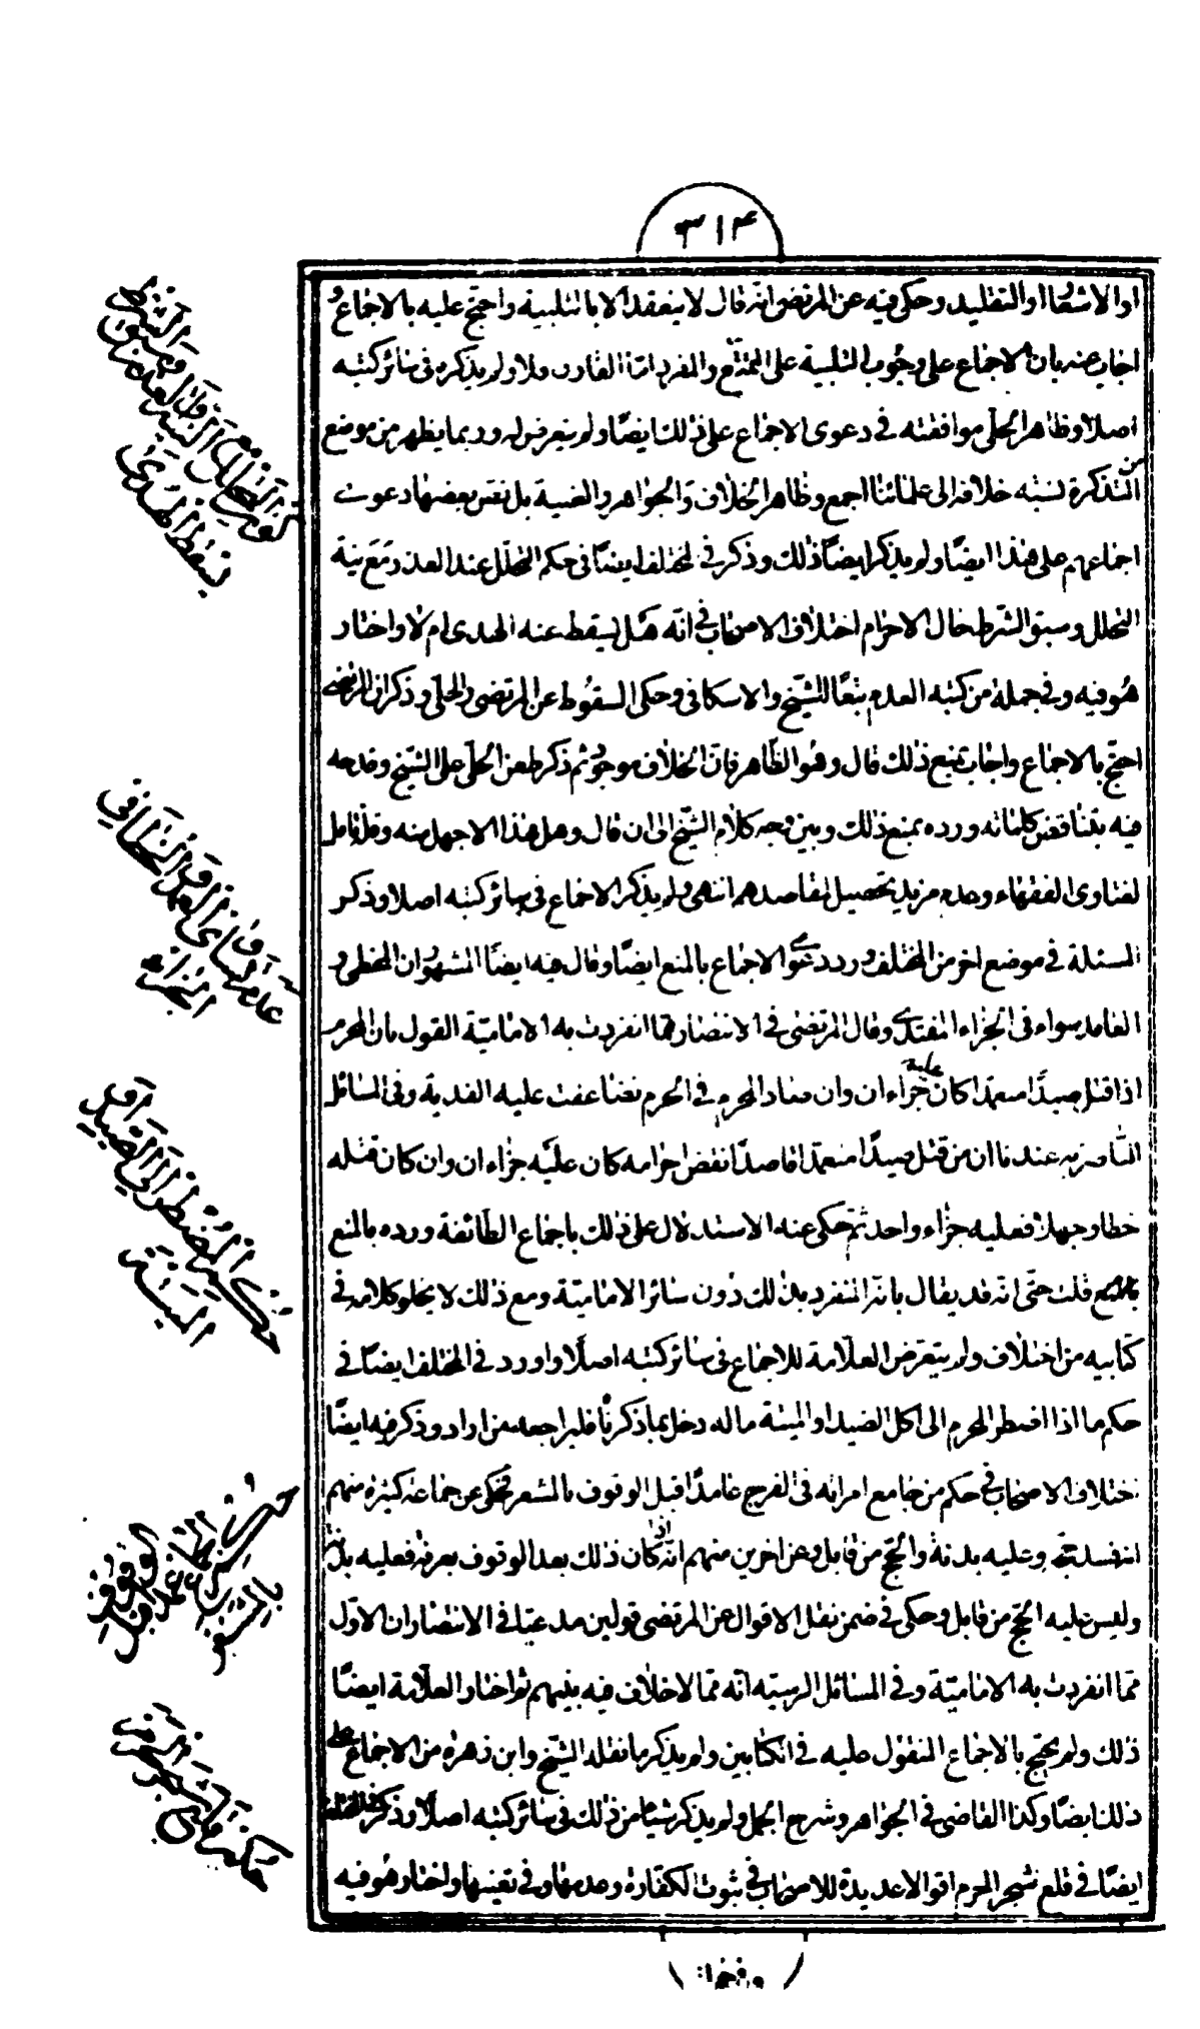 ٣١۴
او الاشعار او التقليد وحكى فيه عن المرتضى انه قال لا ينعقد الا بالتلبية واحتج عليه بالاجماع و
اجاب عنه بان الاجماع على وجوب التلبية على المتمتع والمفرد امّا القارن فلا ولم يذكره فى سائر كتبه
اصلا وظاهر الحلّى موافقته فى دعوى الاجماع على ذلك ايضًا ولم يتعرض له وربما يظهر من موضع
من التذكرة نسبته خلافه الى علمائنا اجمع وظاهر الخلاف والجواهر والغنية بل نفس بعضها دعوت
اجماعهم على هذا ايضًا ولم يذكر ايضًا ذلك وذكر فى المختلف ايضًا فى حكم المحلّل عند العدد مع نية
التحلل وسبق الشرط حال الاحرام اختلاف الاصحاب فى انّه هل يسقط عنه الهدى ام لا واختار
هو فيه وفى جملة من كتبه العدم تبعًا للشيخ والاسكافى وحكى السقوط عن المرتضى والحلّى وذكر ان المرتضى
احتج بالاجماع واجاب بمنع ذلك قال وهو الظّاهر فان الخلاف موجود ثم ذكر طعن الحلّى على الشيخ وقدحه
فيه بتناقض كلماته ورده بمنع ذلك وبين وجه كلام الشيخ الى ان قال وهل هذا الا جهل منه وقلة تامل
لفتاوى الفقهاء وعدم مزيد تحصيل لمقاصدهم انتهى ولم يذكر الاجماع فى سائر كتبه اصلا وذكر
المسئلة فى موضع اخر من المختلف ورد دعوى الاجماع بالمنع ايضًا وقال فيه ايضًا المشهور ان الخطى و
العامد سواء فى الجزاء المفتدى وقال المرتضى فى الانتصار ممّا انفردت به الاماميّة القول بان المحرم
اذا قتل صيدًا متعمدًا كان عليه جزاءان وان صاد المحرم فى الحرم تضاعفت عليه الفدية وفى المسائل
الناصرية عندنا ان من قتل صيدًا متعمدًا قاصدًا نقض احرامه كان عليه جزاءان وان كان قتله
خطا وجهلا فعليه جزاء واحد ثم حكى عنه الاستدلال على ذلك باجماع الطائفة ورده بالمنع
قلت حتّى انه قد يقال بانه المنفرد بذلك دون سائر الاماميّة ومع ذلك لا يخلو كلامه فى
كتابيه من اختلاف ولم يتعرض العلّامة للاجماع فى سائر كتبه اصلًا واورد فى المختلف ايضًا فى
حكم ما اذا اضطر المحرم الى اكل الصيد او الميتة ما له دخل بما ذكرنا فليراجعه من اراد وذكر فيه ايضًا
اختلاف الاصحاب فى حكم من جامع امراته فى الفرج عامدًا قبل الوقوف بالمشعر فحكى عن جماعة كثيرة منهم
انه فسد حجّه وعليه بدنة والحج من قابل وعن اخرين منهم انّه اذا كان ذلك بعد الوقوف بعرفة فعليه بدنة
وليس عليه الحج من قابل وحكى فى ضمن نقل الاقوال عن المرتضى قولين مدعيًا فى الانتصار ان الاول
ممّا انفردت به الاماميّة وفى المسائل الرسيّة انّه ممّا لا خلاف فيه بينهم ثم اختار العلّامة ايضًا
ذلك ولم يحتج بالاجماع المنقول عليه فى الكتابين ولم يذكر ما نقله الشيخ وابن زهرة من الاجماع على
ذلك ايضًا وكذا القاضى فى الجواهر وشرح الجمل ولم يذكر شيئا من ذلك فى سائر كتبه اصلًا وذكر فى المختلف
ايضًا فى قلع شجر الحرم اقوالا عديدة للاصحاب فى ثبوت الكفارة وعدمها وفى تعيينها واختار هو فيه
كون التحلل مع نية التحلل وسبق الشرط
يسقط الهدى
عدم تساوى العامد والخاطى فى
الجزاء
حكم المضطر الى اكل الصيد او
الميتة
حكم من جامع عمدا قبل الوقوف
بالمشعر
حكم قلع شجر الحرم